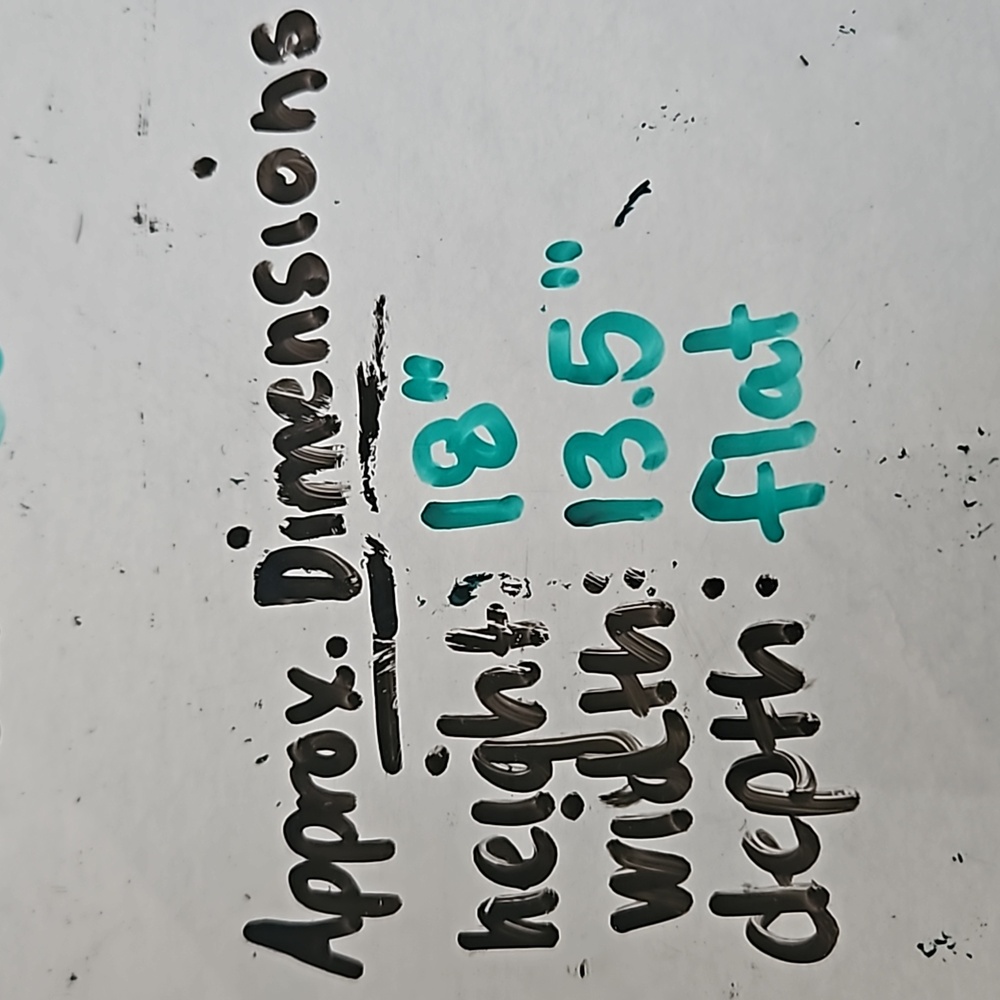 Approx. Dimensions
height: 18"
width: 13.5"
depth: flat